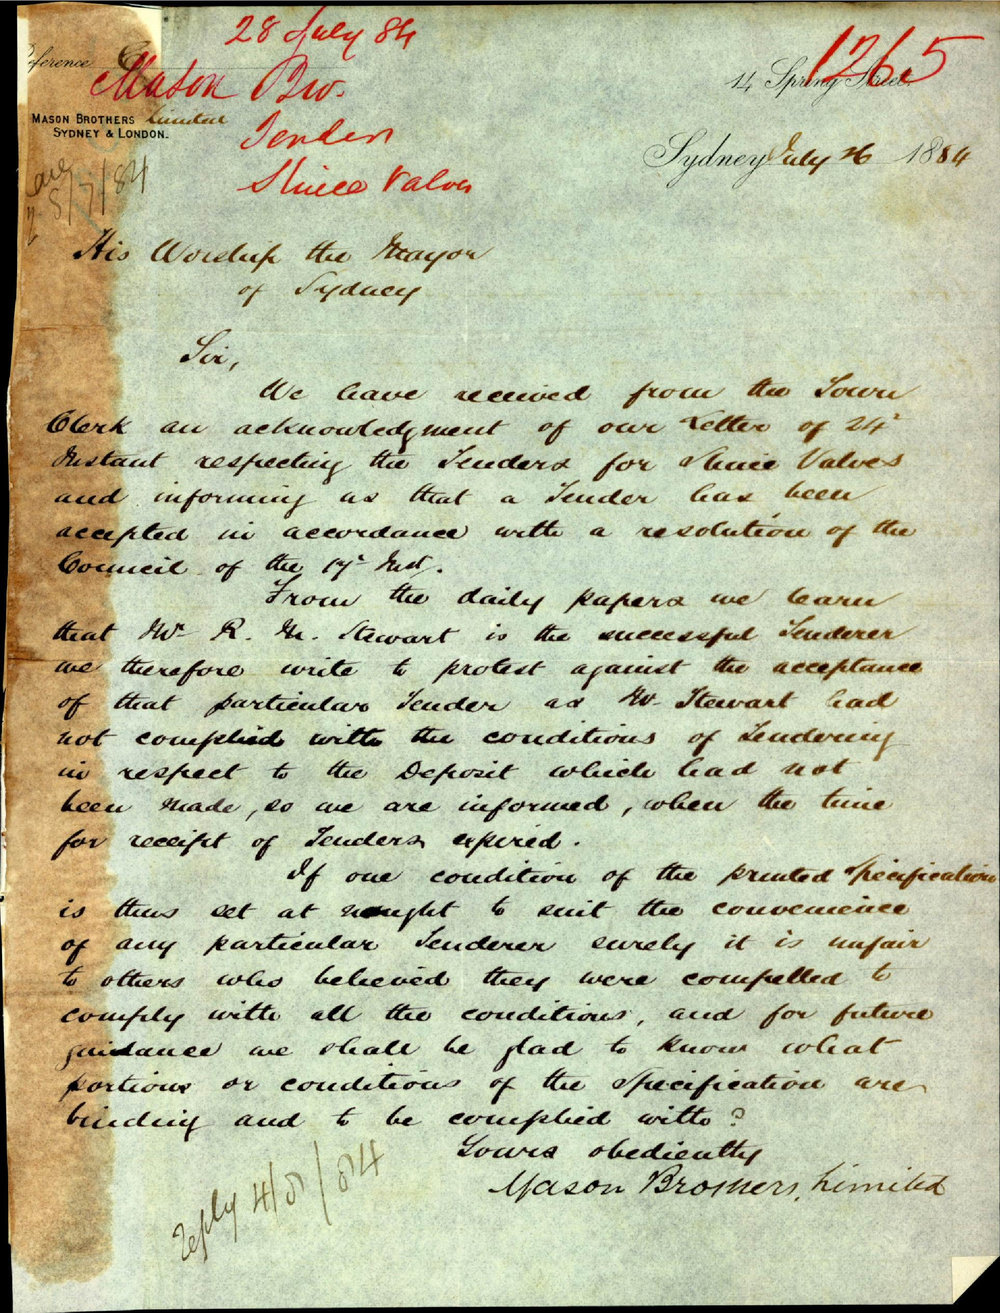 28 July 84
1265
Reference
Mason Bro.
14 Spring Street.
MASON BROTHERS Limited
SYDNEY & LONDON.
Tender
Sluice Valves
Sydney July 26 1884
25/7/84
His Worship the Mayor
of Sydney
Sir,
We have received from the Town
Clerk an acknowledgment of our Letter of 24"
Instant respecting the Tenders for Sluice Valves
and informing us that a Tender has been
accepted in accordance with a resolution of the
Council of the 17" Inst.
From the daily papers we learn
that Mr R. M. Stewart is the successful Tenderer
we therefore write to protest against the acceptance
of that particular Tender as Mr Stewart had
not complied with the conditions of Tendering
in respect to the Deposit which had not
been made, so we are informed, when the time
for receipt of Tenders expired.
If one condition of the printed Specification
is thus set at nought to suit the convenience
of any particular Tenderer surely it is unfair
to others who believed they were compelled to
comply with all the conditions, and for future
guidance we shall be glad to know what
portions or conditions of the Specification are
binding and to be complied with?
Yours obediently
Mason Brothers, Limited
reply 4/8/84